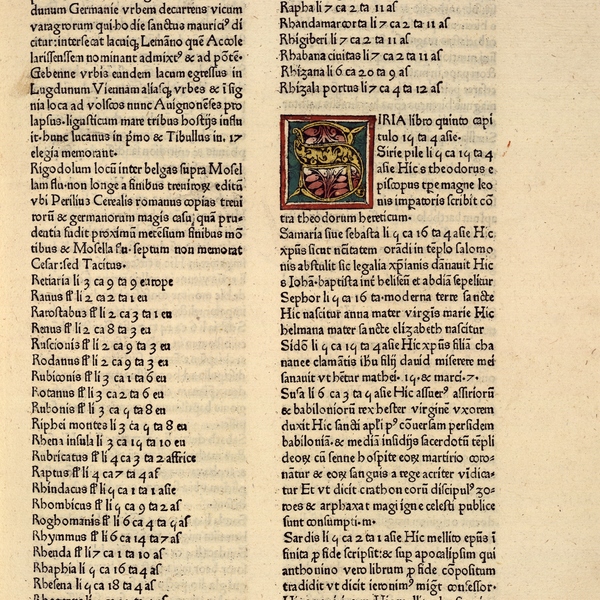 dunum Germanie vrbem decurrens vicum
varagrorum qui·ho die sanctus mauriciꝰ di
citur: intersecat lacuiq; Lemāno quē Accole
larissensem nominant admixtꝰ & ad pōtē·
Gebenne vrbis eundem lacum egressus in
Lugdunum Viennam aliasq; vrbes & īsig
nia loca ad volscos nunc Auignonēses pro
lapsus·ligusticum mare tribus hostijs influ
it·hunc lucanus in p̄mo & Tibullus in. 17
elegia memorant·
Rigodolum locū inter belgas supra Mosel
lam flu·non longe a finibus treuiroꝝ editū
vbi Perilius Cerealis romanus copias treui
rorū & germanorum magis casu; quā pru⸗
dentia fudit proximā metesium finibus mō
tibus & Mosella flu· septum non memorat
Cesar: sed Tacitus·
Retiaria li 3 ca 9 ta 9 europe
Rauus fl' li 2 ca 2 ta 1 eu
Rarostabus fl' li 2 ca 3 ta 1 eu
Renus fl' li 2 ca 8 ta 3 eu
Ruscionis fl' li 2 ca 9 ta 3 eu
Rodanus fl' li 2 ca 9 ta 3 eu
Rubiconis fl' li 3 ca 1 ta 6 eu
Rotanus fl' li 3 ca 2 ta 6 eu
Rubonis fl' li 3 ca ꝗ ta 8 eu
Riphei montes li 3 ca ꝗ ta 8 eu
Rhena insula li 3 ca 1ꝗ ta 10 eu
Rubricatus fl' li 4 ca 3 ta 2 affrice
Raptus fl' li 4 ca 7 ta 4 af
Rhindacus fl' li ꝗ ca 1 ta 1 asie
Rhombicus fl' li ꝗ ca 9 ta 2 af
Rogbomanis fl' li 6 ca 4 ta ꝗ af
Rhymmus fl' li 6 ca 14 ta 7 af
Rhenda fl' li 7 ca 1 ta 10 af
Rhaphia li ꝗ ca 16 ta 4 af
Rhesena li ꝗ ca 18 ta 4 af
Rapha li 7 ca 2 ta 11 af
Rhandamarcorta li 7 ca 2 ta 11 af
Rhigiberi li 7 ca 2 ta 11 af
Rhabana ciuitas li 7 ca 2 ta 11 af
Rhizana li 6 ca 20 ta 9 af
Rhizala portus li 7 ca 4 ta 12 af
SIRIA libro quinto capi
tulo 1ꝗ ta 4 asie·
Sirie pile li ꝗ ca 1ꝗ ta 4
asie Hic s theodorus e
piscopus tpe magne leo
nis impatoris scribit cō
tra theodorum hereticum·
Samaria siue sebasta li ꝗ ca 16 ta 4 asie Hic
xpūs sicut nūtatem orādi in tēplo salomo
nis abstulit sic legalia xp̄ianis dānauit Hic
s Iohā·baptista int̄ heliseū et abdiā sepelitur
Sephor li ꝗ ca 16 ta·moderna terre sancte
Hic nascitur anna mater virgis marie Hic
helmana mater sancte elizabeth nascitur
Sidō li ꝗ ca 1ꝗ ta 4 asie Hic xpūs filiā cha
nanee clamātis ihu fili dauid miserere mei
sanauit vt hētur mathei· 1ꝗ·& marci·7·
Susa li 6 ca 3 ta ꝗ asie Hic assuerꝰ assiriorū
& babiloniorū rex hester virginē vxorem
duxit Hic sancti apl'i pꝰ cōuersam persidem
babiloniā·& mediā insidijs sacerdotū tēpli
deoꝝ cū senne hospite eoꝝ martirio coro⸗
nātur & eoꝝ sanguis a rege acriter vīdica⸗
tur Et vt dicit crathon eorū discipulꝰ zo⸗
roes & arphaxat magi igne celesti publice
sunt consumpti·m·
Sardis li ꝗ ca 2 ta 1 asie Hic mellito ep̄us ī
finita ꝓ fide scripsit: & sup apocalipsim qui
anthouino vero librum ꝓ fide cōpositum
tradidit vt dicit ieronimꝰ migr̄t confessor·